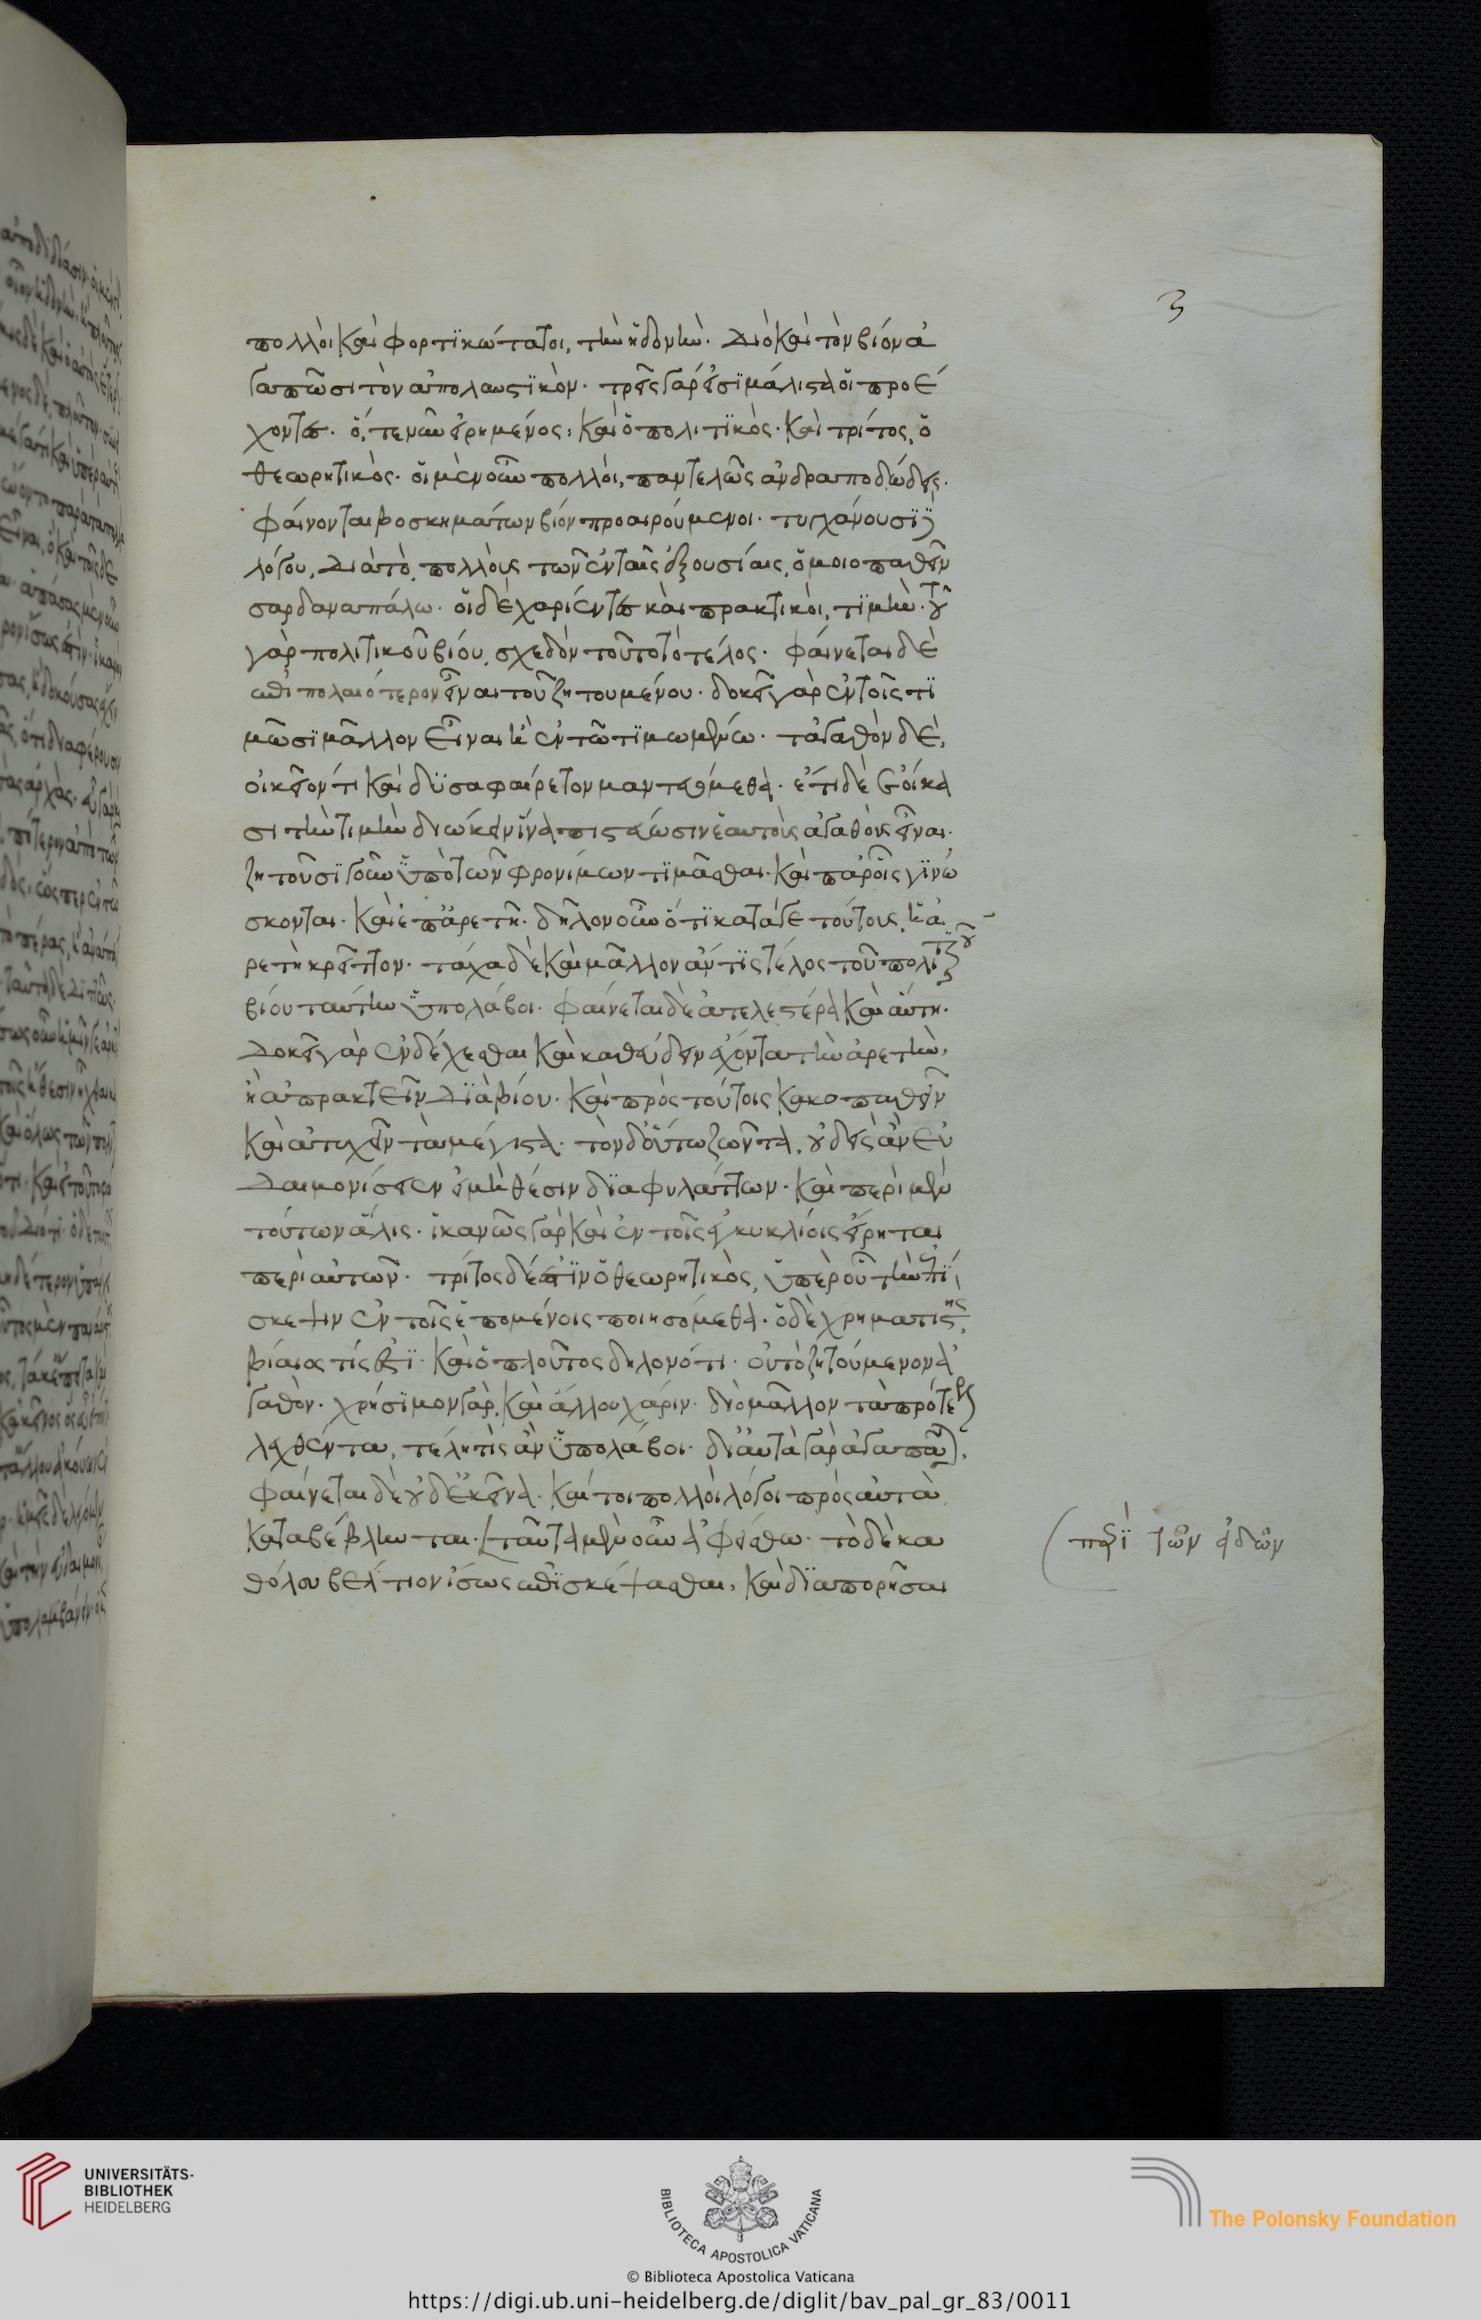 3
πολλοὶ καὶ φορτϊκώτατοι, τὴν ἡδονήν. Διὸ καὶ τὸν βίον ἀ
γαπῶσι τὸν ἀπολαυστϊκὸν. τρεῖς γάρ εἰσϊ μάλιστα οἵ προέ
χοντες. ὅ, τε νῦν εἰρημένος· καὶ ὁ πολιτϊκὸς. καὶ τρίτος, ὁ
θεωρητικὸς. οἱ μὲν οὖν πολλοὶ, παντελῶς ἀνδραποδώδεις.
φαίνονται βοσκημάτων βίον προαιρούμενοι. τυγχάνουσϊ δὲ
λόγου, Διὰ τὸ, πολλοὺς τῶν ἐν ταῖς ἐξουσίαις, ὁμοιοπαθεῖν
σαρδαναπάλω. οἱ δὲ χαρίεντες καὶ πρακτικοὶ, τϊμήν. τοῦ
γὰρ πολιτικοῦ βίου, σχεδὸν τοῦτο τὸ τέλος. φαίνεται δὲ
ἐπιπολαιότερον εἶναι τοῦ ζητουμένου. δοκεῖ γὰρ ἐν τοῖς τϊ
μῶσϊ μᾶλλον εἶναι ἢ ἐν τῶ τϊμωμένω. τἀγαθὸν δὲ,
οἰκεῖόν τι καὶ δϋσαφαίρετον μαντευόμεθα. ἔτι δὲ ἐοίκα
σι τὴν τιμὴν διώκειν ἵνα πιστεύωσιν ἑαυτοὺς ἀγαθοὺς εἶναι.
ζητοῦσϊ γοῦν ὑπὸ τῶν φρονίμων τϊμᾶσθαι. καὶ παρ οἷς γϊνώ
σκονται. καὶ ἐπ ἀρετῆ. δῆλον οὖν ὅτϊ κατά γε τούτους, ἡ ἀ
ρετὴ κρείττων. τάχα δὲ καὶ μᾶλλον ἄν τϊς τέλος τοῦ πολιτϊκοῦ
βίου ταύτην ὑπολάβοι. φαίνεται δὲ ἀτελεστέρα καὶ αὕτη.
Δοκεῖ γὰρ ἐνδέχεσθαι καὶ καθεύδειν ἔχοντα τὴν ἀρετὴν,
ἢ ἀπρακτεῖν Διὰ βίου. καὶ πρὸς τούτοις κακοπαθεῖν
καὶ ἀτυχεῖν τὰ μέγιστα. τὸν δ οὕτω ζῶντα, οὐδεὶς ἂν εὐ
Δαιμονίσειεν εἰ μὴ θέσιν δϊαφυλάττων. καὶ περὶ μὲν
τούτων ἅλις. ἱκανῶς γὰρ καὶ ἐν τοῖς ἐγκυκλίοις εἴρηται
περὶ αὐτῶν. τρίτος δέ ἐστϊν ὁ θεωρητικὸς, ὑπὲρ οὗ τὴν ἐπί
σκεψιν ἐν τοῖς ἑπομένοις ποιησόμεθα. ὁ δὲ χρηματιστὴς,
βίαιός τίς ἐστϊ. καὶ ὁ πλοῦτος δηλονότι. οὐ τὸ ζητούμενον ἀ
γαθὸν. χρήσϊμον γὰρ, καὶ ἄλλου χάριν. διὸ μᾶλλον τὰ πρότερον
λεχθέντα, τέλη τὶς ἂν ὑπολάβοι. δι αὑτὰ γὰρ ἀγαπᾶται.
φαίνεται δὲ οὐδ ἐκεῖνα. καίτοι πολλοὶ λόγοι πρὸς αὐτὰ
καταβέβληνται. ταῦτα μὲν οὖν ἀφείσθω. τὸ δὲ κα
θόλου βέλτιον ἴσως ἐπϊσκέψασθαι, καὶ δϊαπορῆσαι
περὶ τῶν εἰδῶν
UNIVERSITÄTS-
BIBLIOTHEK
HEIDELBERG
BIBLIOTECA APOSTOLICA VATICANA
© Biblioteca Apostolica Vaticana
The Polonsky Foundation
https://digi.ub.uni-heidelberg.de/diglit/bav_pal_gr_83/0011